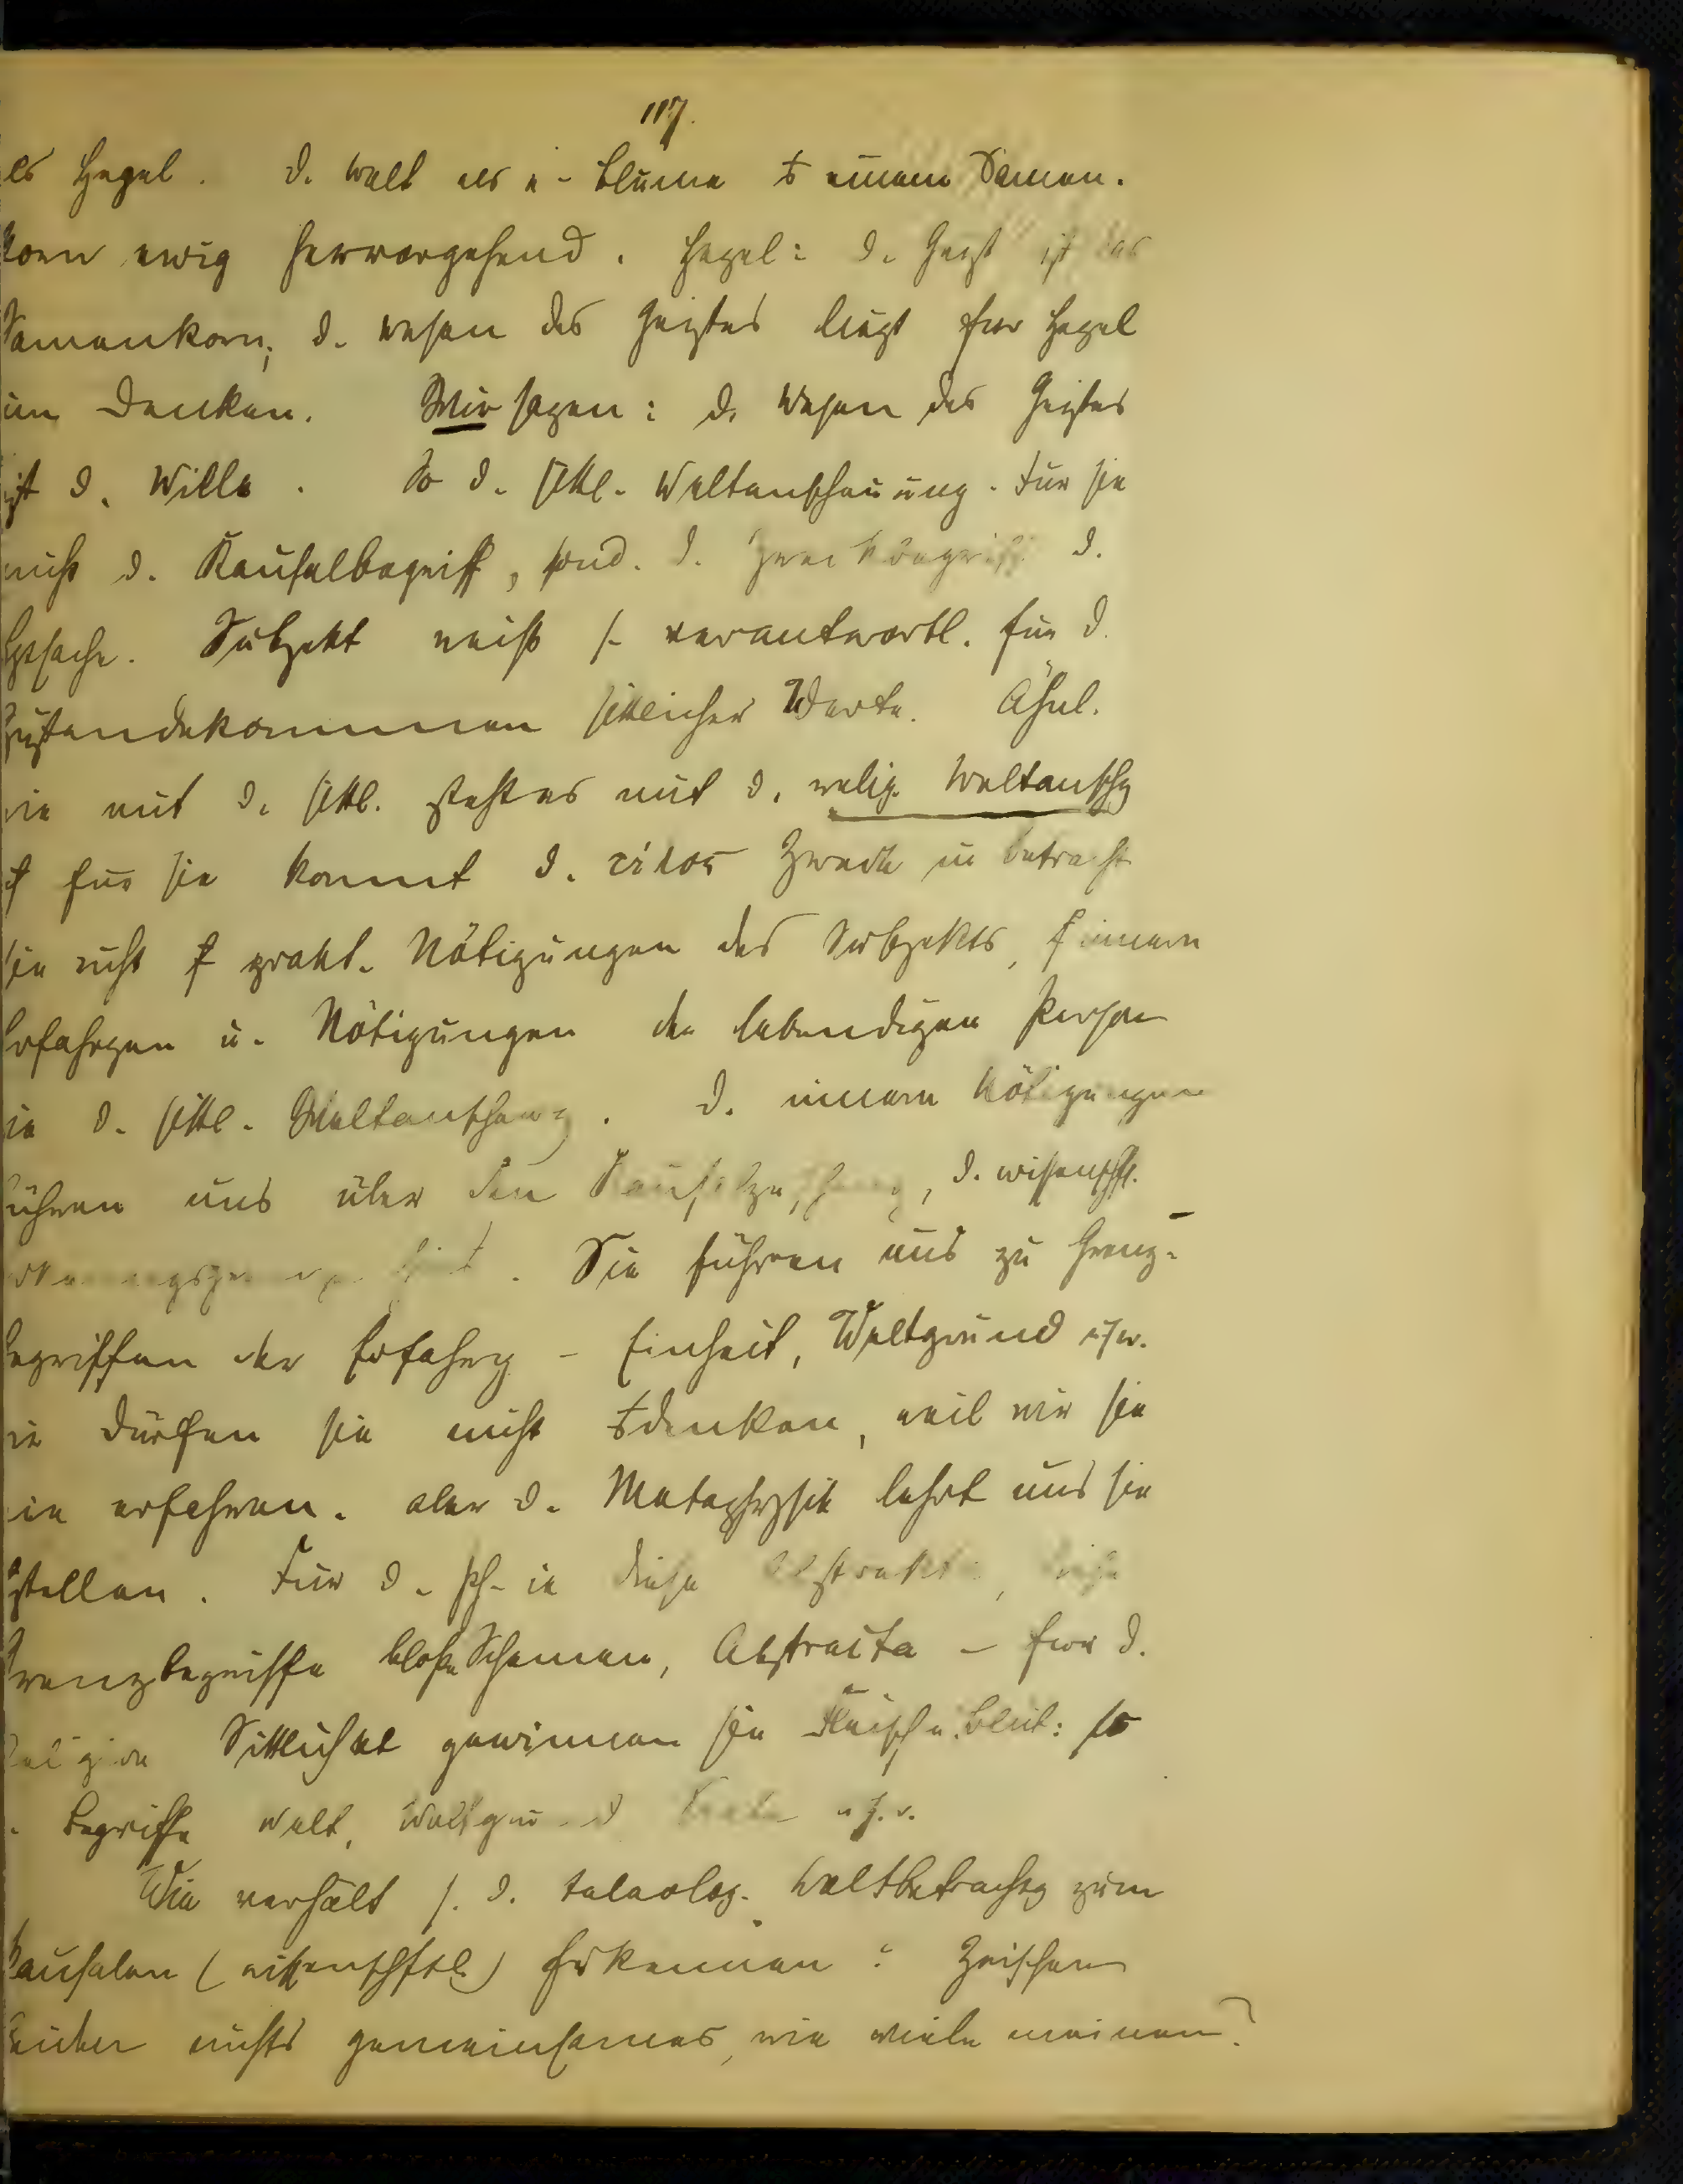 117.
als Hegel. D. Welt als e- Blume aus einem Samen-
korn ewig hervorgehend. Hegel: D. Geist ist das
Samenkorn; D. Wesen des Geistes liegt für Hegel
im Denken. Wir sagen: D. Wesen des Geistes
ist D. Wille. So D. sittl. Weltanschauung. Für sie
nicht D. Kausalbegriff, sond. D. Zweckbegriff D.
Hptsache. Subjekt weiß s- verantwortl. für D.
Zustandekommen sittlicher Werte. Ähnl.
wie mit D. sittl. steht es mit D. relig. Weltanschg
für sie kommt D. τέλος Zweck in Betracht
Sie ruht prakt. Nötigungen des Subjekts, innern
Erfahrgen u. Nötigungen der lebendigen Person
wie D. sittl. Weltanschaug. D. innern Nötigungen
führen uns über den, D. wissenschftl.
Sie führen uns zu Grenz-
begriffen der Erfahrg - Einheit, Weltgrund usw.
Wir dürfen sie nicht denken, weil wir sie
nie erfahren. Aber D. Metaphysik lehrt uns sie
stellen. Für D. Ph-ie diese
Grenzbegriffe bloße Schemen, Abstracta - für D.
Religion Sittlichkt gewinnen sie Fleisch u. Blut: so
D. Begriffe Welt, Weltgrund u.s.w.
Wie verhält s. D. teleolog. Weltbetrachtg zum
Kausalen (wissenschftl.) Erkennen? Zwischen
beiden nichts gemeinsames, wie viele meinen?